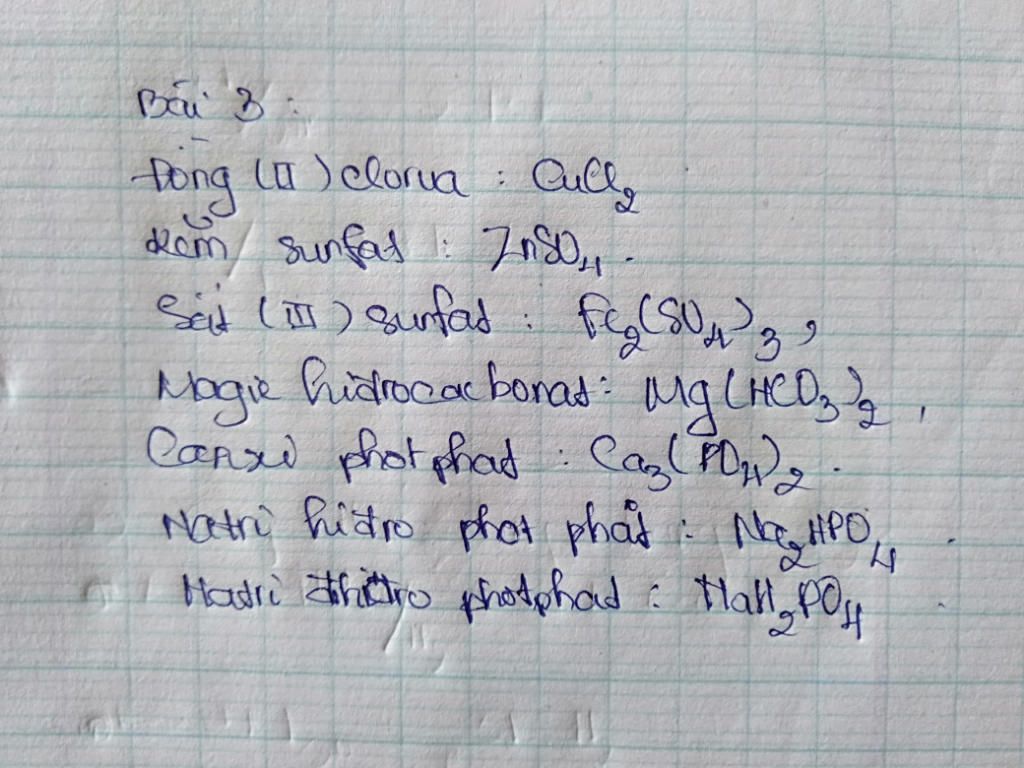 Bài 3 :
Đồng (II) clorua : CuCl₂
kẽm sunfat : ZnSO₄.
Sắt (III) sunfat : Fe₂(SO₄)₃,
Magie hidrocacbonat : Mg(HCO₃)₂,
Canxi photphat : Ca₃(PO₄)₂.
Natri hidro phot phát : Na₂HPO₄.
Natri đihidro photphat : NaH₂PO₄.